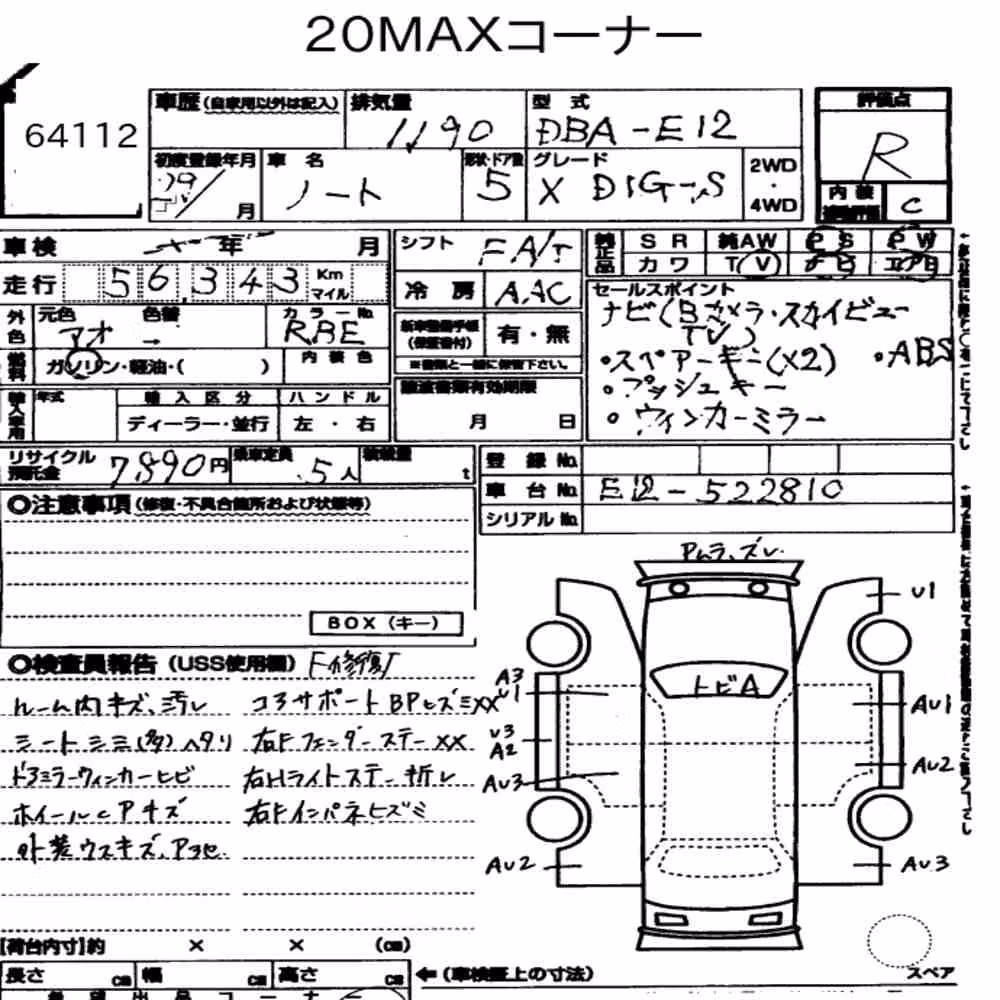 20MAXコーナー
64112
車歴(自家用以外は記入) 排気量 1190 型式 DBA-E12 評価点 R
初度登録年月 29/ 月 車名 ノート 形状・ドア数 5 グレード X DIG-S 2WD・4WD 内装 C
車検 年 月 シフト FA/T 純正品 SR 純AW PS PW
走行 56,343 Km マイル 冷房 AAC カワ TV
外色 元色 アオ 色替 → カラーNo. RBE 新車整備手帳(保証書付) 有・無 セールスポイント
※書類と一緒に保管下さい。 ナビ(Bカメラ・スカイビュー
TV)
燃料 ガソリン・軽油・( ) 内装色 ・スペアーキー(×2) ・ABS
・プッシュキー
・ウィンカーミラー
輸入車用 年式 輸入区分 ハンドル 譲渡書類有効期限
ディーラー・並行 左・右 月 日
リサイクル預託金 7890円 乗車定員 5人 積載量 t 登録No.
車台No. E12-522810
シリアルNo.
○注意事項(修復・不具合箇所および状態等)
BOX(キー)
○検査員報告(USS使用欄) F修復
ルーム内キズ、汚レ コアサポートBPヒズミXX
シートシミ(多)ヘタリ 右FフェンダーステーXX
ドアミラーウィンカーヒビ 右Hライトステー折レ
ホイールcアキズ 右Fインパネヒズミ
外装ウスキズ、アコセ
Pムラ、ズレ
U1
トビA
A3
U1
U3
A2
AU3
AU2
AU1
AU2
AU3
スペア
[荷台内寸]約 × × (cm)
長さ cm 幅 cm 高さ cm ←(車検証上の寸法)
希望出品コーナー